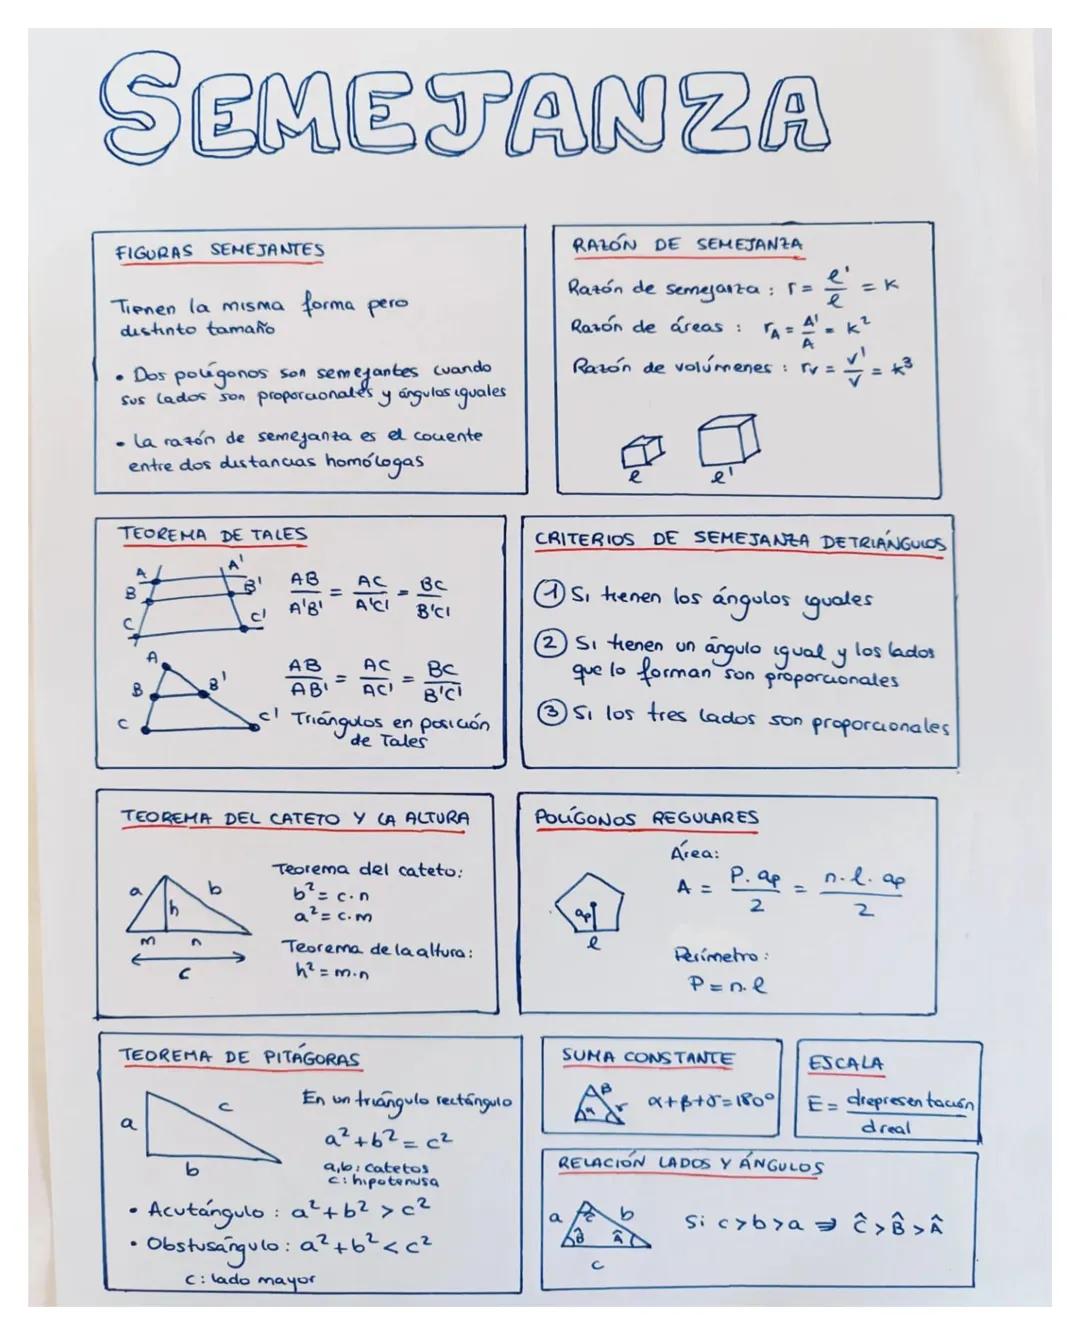 SEMEJANZA
FIGURAS SEMEJANTES
Tienen la misma forma pero
distinto tamaño
• Dos polígonos son semejantes cuando
sus lados son proporcionales y ángulos iguales
• La razón de semejanza es el cociente
entre dos distancias homólogas
RAZÓN DE SEMEJANZA
Razón de semejanza : r = l'/l = K
Razón de áreas : rA = A'/A = K²
Razón de volúmenes : rv = V'/V = K³
l l'
TEOREMA DE TALES
A A'
B B'
C C'
AB/A'B' = AC/A'C' = BC/B'C'
A
B B'
C C'
AB/AB' = AC/AC' = BC/B'C'
Triángulos en posición
de Tales
CRITERIOS DE SEMEJANZA DE TRIÁNGULOS
1 Si tienen los ángulos iguales
2 Si tienen un ángulo igual y los lados
que lo forman son proporcionales
3 Si los tres lados son proporcionales
TEOREMA DEL CATETO Y LA ALTURA
a b
h
m n
c
Teorema del cateto:
b² = c.n
a² = c.m
Teorema de la altura:
h² = m.n
POLÍGONOS REGULARES
ap
l
Área:
A = P.ap/2 = n.l.ap/2
Perímetro:
P = n.l
TEOREMA DE PITÁGORAS
a c
b
En un triángulo rectángulo
a² + b² = c²
a,b: catetos
c: hipotenusa
• Acutángulo : a² + b² > c²
• Obstusángulo : a² + b² < c²
c: lado mayor
SUMA CONSTANTE
β
α γ
α+β+γ=180º
ESCALA
E = d representación/d real
RELACIÓN LADOS Y ÁNGULOS
a Ĉ b
B̂ Â
c
Si c>b>a ⇒ Ĉ>B̂>Â